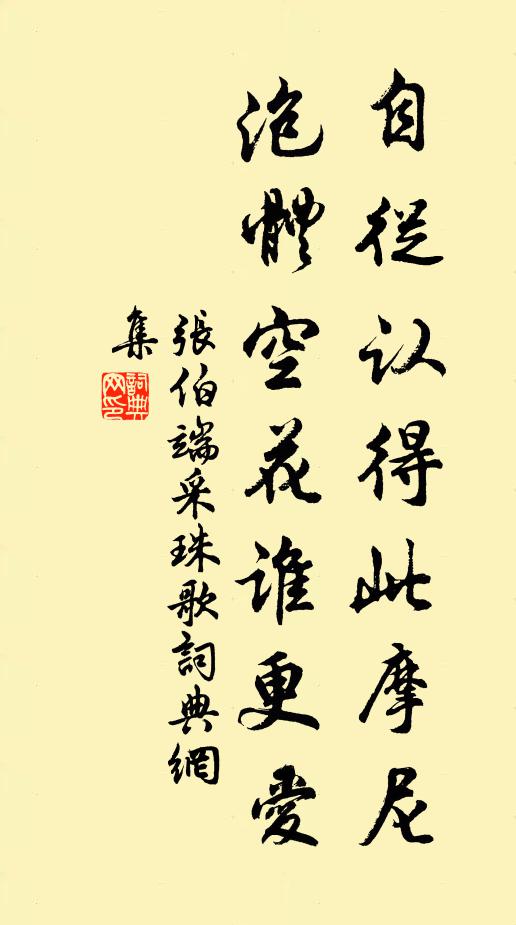 自從认得此摩尼
泡體空花誰更愛
張伯端采珠歌詞典網
集
詞典网印